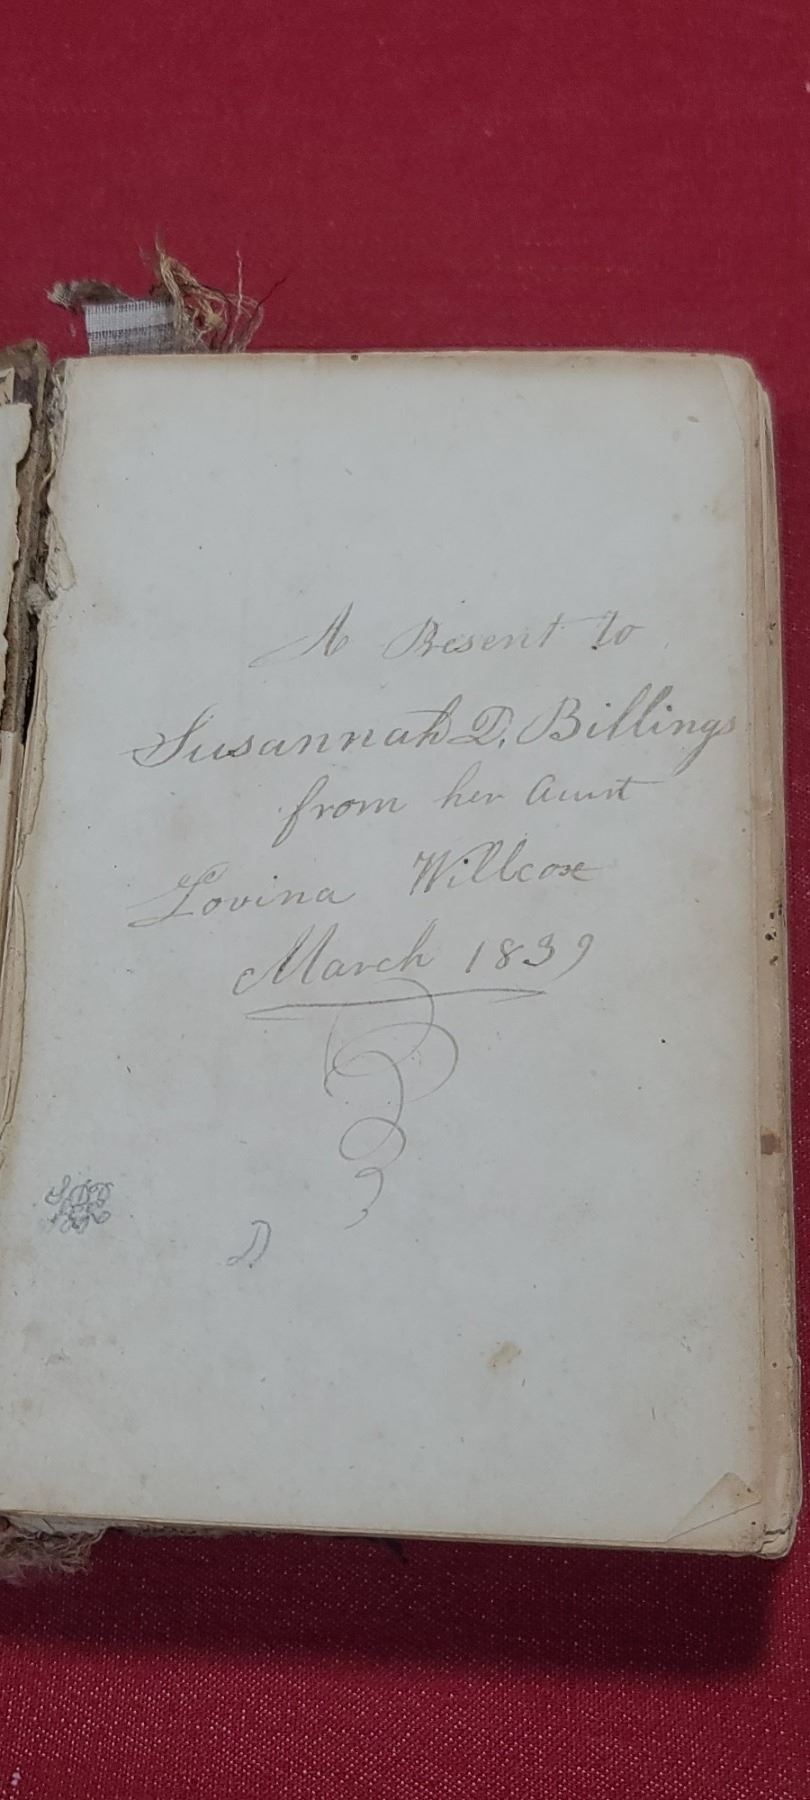 A Present to
Susannah D. Billings
from her Aunt
Lovina Willcox
March 1839
D